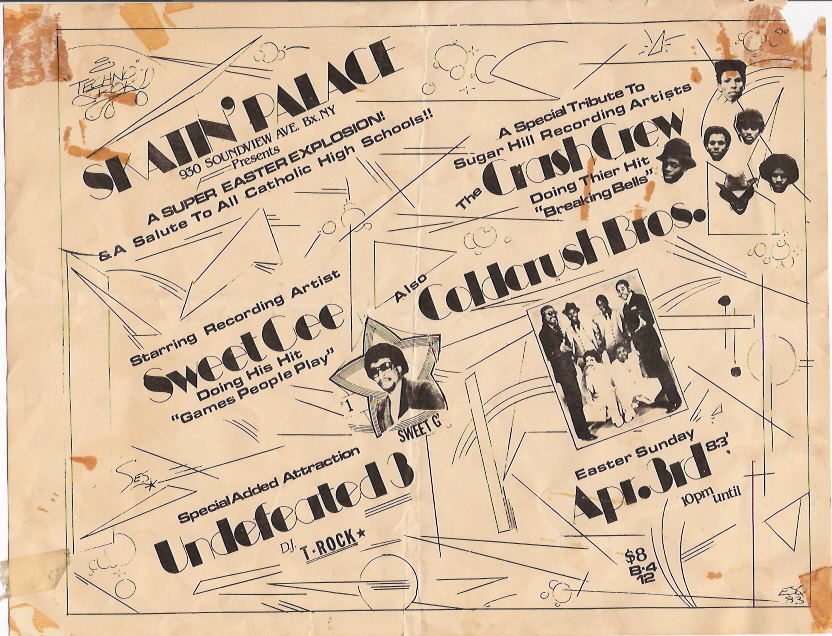 SKATIN' PALACE
930 SOUNDVIEW AVE. Bx. NY
Presents
A SUPER EASTER EXPLOSION!
& A Salute To All Catholic High Schools!!
A Special Tribute To
Sugar Hill Recording Artists
The Crash Crew
Doing Thier Hit
"Breaking Bells"
Also
Coldcrush Bros.
Starring Recording Artist
Sweet Gee
Doing His Hit
"Games People Play"
1
SWEET G'
Special Added Attraction
Undefeated 3
D.J. T·ROCK★
Easter Sunday
Apr. 3rd 83'
10pm until
$8
B·4
12